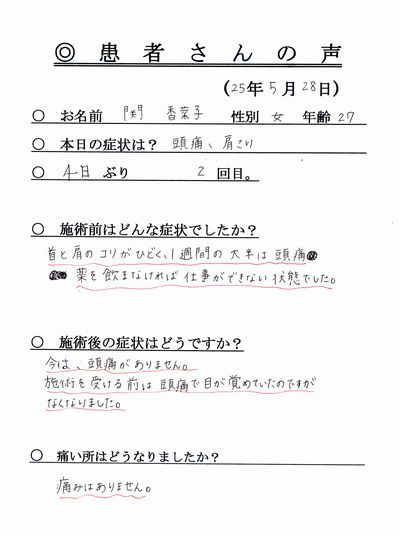 ◎ 患者さんの声
(25年5月28日)
○ お名前 関 香菜子 性別 女 年齢 27
○ 本日の症状は? 頭痛、肩こり
○ 4日 ぶり 2 回目。
○ 施術前はどんな症状でしたか?
首と肩のコリがひどく、1週間の大半は頭痛
薬を飲まなければ仕事ができない状態でした。
○ 施術後の症状はどうですか?
今は、頭痛がありません。
施術を受ける前は頭痛で目が覚めていたのですが
なくなりました。
○ 痛い所はどうなりましたか?
痛みはありません。